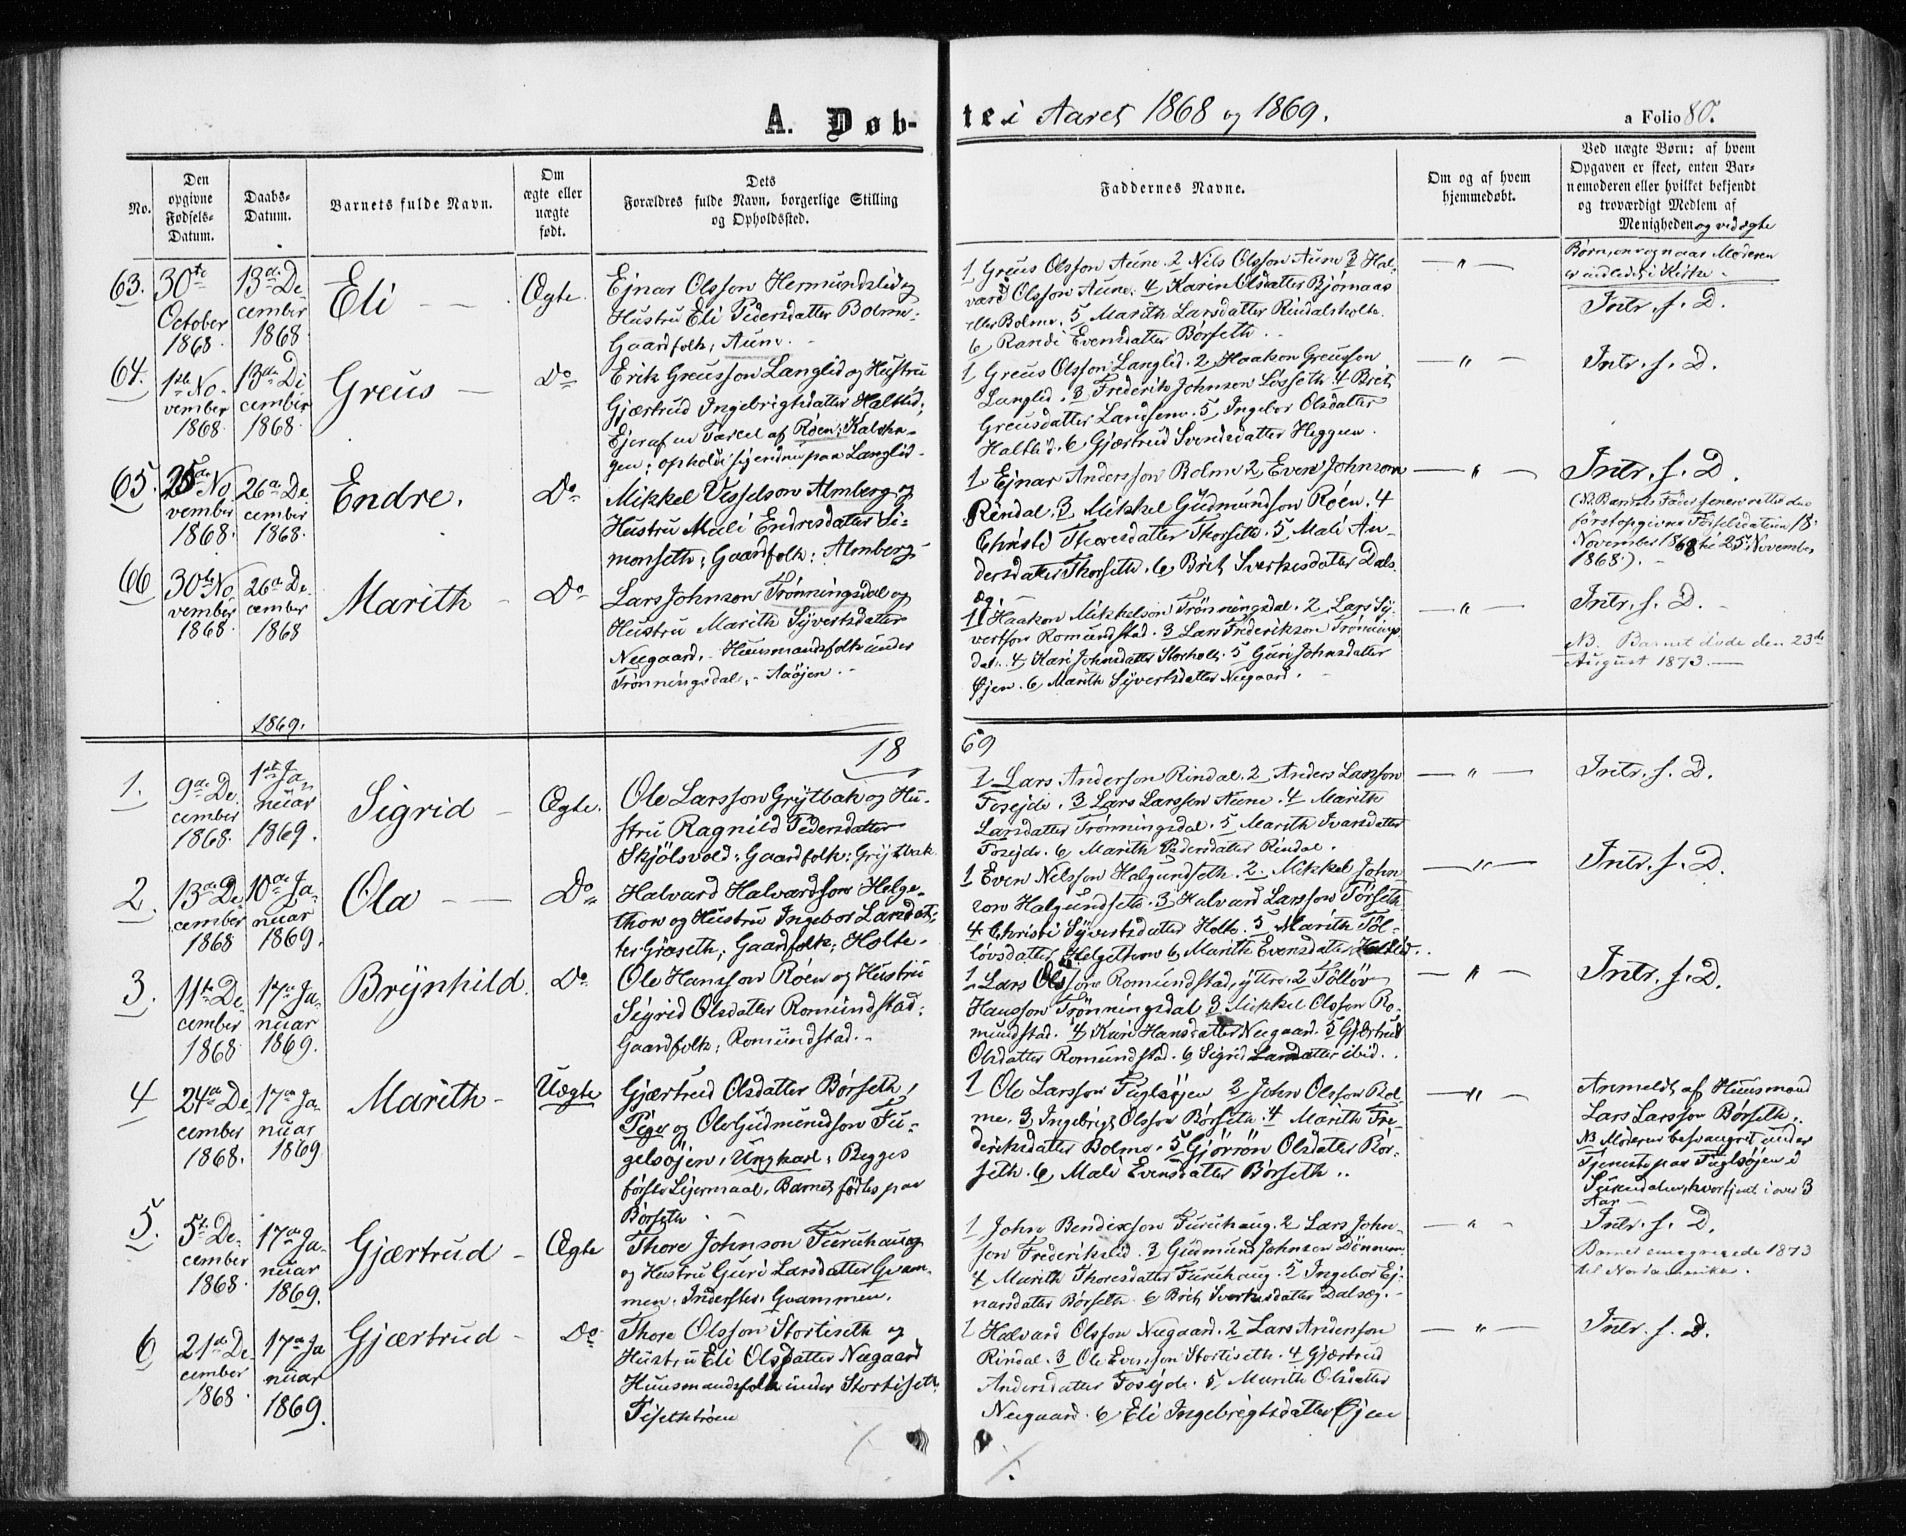 A. Døb-
te i Aaret 1868 og 1869.
a Folio 80.
No.
Den
opgivne
Fødsels-
Datum.
Daabs-
Datum.
Barnets fulde Navn.
Om
ægte eller
uægte
født.
Dets
Forældres fulde Navn, borgerlige Stilling
og Opholdssted.
Faddernes Navne.
Om og af hvem
hjemmedøbt.
Ved uægte Børn: af hvem
Opgaven er skeet, enten Bar-
nemoderen eller hvilket bekjendt
og troværdigt Medlem af
Menigheden og ved ægte
Børn, om og naar Moderen
er indledet i Kirke.
63.
30te
October
1868.
13de De-
cember
1868.
Eli
Ægte.
Ejnar Olsson Hermundslid og
Hustru Eli Pedersdatter Bolme.
Gaardfolk; Aune.
1 Greus Olsson Aune. 2 Nils Olsson Aune 3 Hal-
vard Olsson Aune. 4 Karen Olsdatter Bjørnaas
eller Bolme. 5 Marith Larsdatter Rindalsholte.
6 Randi Evensdatter Børseth.
Intr. f. D.
64.
1ste No-
vember
1868.
13de De
cember
1868.
Greus
Do
Erik Greusson Langlid og Hustru
Gjærtrud Ingebrigtsdatter Haltlid;
Ejer af en Parcel af Røen:
opholde sig endnu paa Langlid.
1 Greus Olsson Langlid. 2 Haakon Greusson
Langlid. 3 Frederik Johnson Løsseth. 4 Brit
Greusdatter Landsem. 5 Ingebor Olsdatter
Haltlid. 6 Gjærtrud Svendsdatter Heggem.
Intr. f. D.
65.
25de No
vember
1868.
26de De-
cember
1868.
Endre.
Do
Mikkel Visselson Almberg og
Hustru Mali Endresdatter Si-
monseth; Gaardfolk: Almberg.
1 Ejnar Andersson Bolme 2 Even Johnson
Rindal. 3 Mikkel Gudmundson Røen. 4
Christi Thoresdatter Thorseth. 5 Mali An-
dersdatter Thorseth. 6 Brit Sverkesdatter Dals-
æg.
Intr. f. D.
(NB. Barnets Fader senere rettede den
først opgivne Fødselsdatum 18.
November 1868 til 25. November
1868).
66
30te No
vember
1868.
26de De-
cember
1868
Marith
Do
Lars Johnson Trønningsdal og
Hustru Marith Syvertsdatter
Neegaard. Huusmandsfolk under
Trønningsdal; Aaøjen.
1 Haakon Mikkelson Trønningsdal. 2 Lars Sy-
vertson Romundstad. 3 Lars Frederikson Trønnings-
dal. 4 Kari Johnsdatter Storholt. 5 Guri Johnsdatter
Øjen. 6 Marith Syvertsdatter Neegaard.
Intr. f. D.
NB. Barnet døde den 23de
August 1873.
1869.
18
69
1.
9de De
cember
1868.
1ste Ja-
nuar
1869.
Sigrid
Ægte.
Ole Larsson Grytbak og Hu-
stru Ragnild Pedersdatter
Skjølsvold: Gaardfolk: Grytbak
1 Lars Anderson Rindal. 2 Anders Larsson
Fosejde. 3 Lars Larsson Aune. 4 Marith
Larsdatter Trønningsdal. 5 Marith Ivarsdatter
Fosejde. 6 Marith Pedersdatter Rindal.
Intr. f. D.
2.
13de De
cember
1868
10de Ja-
nuar
1869.
Ola
Do
Halvard Halvardson Helge-
thon og Hustru Ingebor Larsdat-
ter Græseth; Gaardfolk; Holte.
1 Even Nilsson Halgundseth. 2. Mikkel John
son Halgundseth. 3 Halvard Larsson Tørseth
4 Christi Syvertsdatter Holte. 5 Marith Tøl-
løvsdatter Helgethon 6 Marith Evensdatter Haltlid.
Intr. f. D.
3.
11te De
cember
1868
17de Ja-
nuar
1869.
Brynhild
Do
Ole Hansson Røen og Hustru
Sigrid Olsdatter Romundstad;
Gaardfolk; Romundstad.
1 Lars Olsson Romundstad, yttre. 2 Tølløv
Hansson Trønningsdal 3 Mikkel Olsson Ro-
mundstad. 4 Kari Hansdatter Neegaard. 5 Gjærtrud
Olsdatter Romundstad. 6 Sigrid Larsdatter ibid.
Intr. f. D.
4
24de De
cember
1868.
17de Ja-
nuar
1869
Marith
Uægte
Gjærtrud Olsdatter Børseth,
Pige og Ole Gudmundson Fu-
gelsøjen, Ungkarl; Begges
første Lejermaal. Barnet fødtes paa
Børseth
1 Ole Larsson Fuglsøjen 2 John Olsson Bol-
me. 3 Ingebrigt Olsson Børseth. 4 Marith Fre-
deriksdatter Bolme. 5 Gjørøn Olsdatter Bør-
seth. 6 Mali Evensdatter Børseth.
Anmeldt af Huusmand
Lars Larsson Børseth.
NB Moderen besvangret under
Tjeneste paa Fuglsøjen i
Surendalen, hvor tjent i over 3
Aar
5.
5te De-
cember
1868.
17de Ja-
nuar
1869.
Gjærtrud
Ægte
Thore Johnson Furuhaug
og Hustru Guri Larsdatter Gvam-
men. Inderster. Gvammen.
1 John Bendixson Furuhaug. 2 Lars John-
son Frederikslid. 3 Gudmund Johnson Dønnem.
4 Marith Thoresdatter Furuhaug. 5 Ingebor Ej-
narsdatter Børseth. 6 Brit Sverkesdatter Dalsæg.
Intr. f. D.
Barnet emigrerede 1873
til Nordamerika.
6
21de De
cember
1868
17de Ja
nuar
1869.
Gjærtrud
Do
Thore Olsson Stortiseth og
Hustru Eli Olsdatter Neegaard
Huusmandsfolk under Stortiseth
1 Halvard Olsson Neegaard. 2 Lars Andersson
Rindal. 3 Ole Evensson Stortiseth. 4 Gjærtrud
Andersdatter Fosejde. 5 Marith Olsdatter
Neegaard. 6 Eli Ingebrigtsdatter Øjen
Intr. f. D.